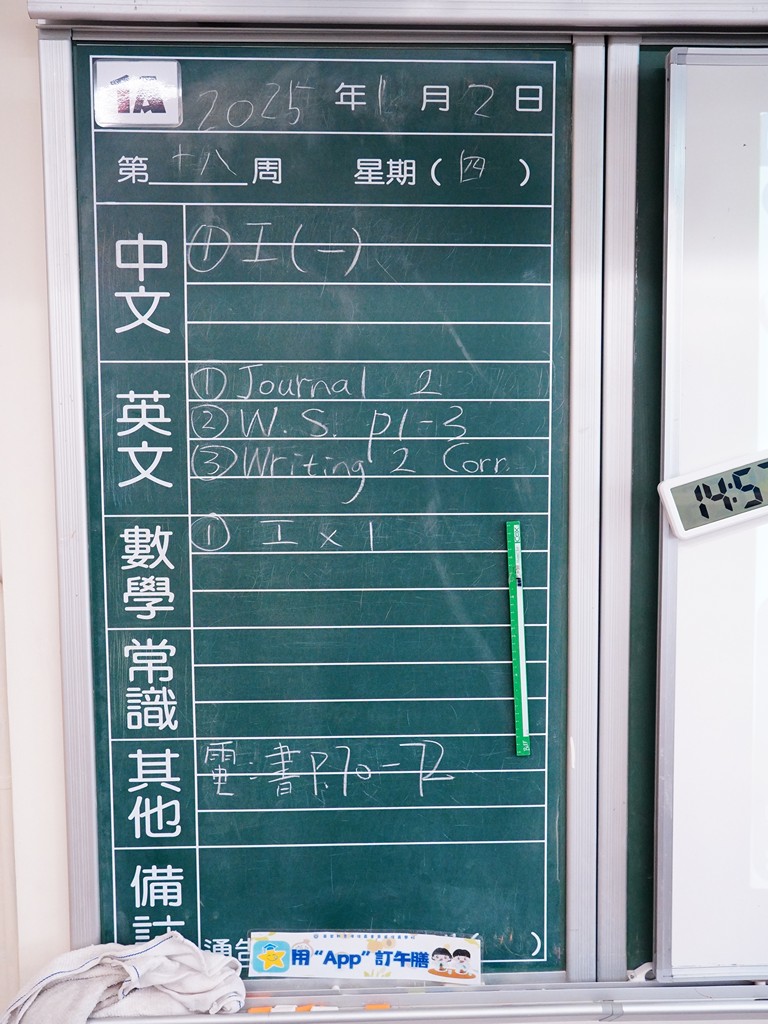 2025年1月2日
第十八周 星期(四)
中文
① 工(一)
英文
① Journal 2
② W.S. p1-3
③ Writing 2 Corr
數學
① 工 x 1
常識
其他
電:書 P.70-72
備註
通告
用“App”訂午膳
14:57